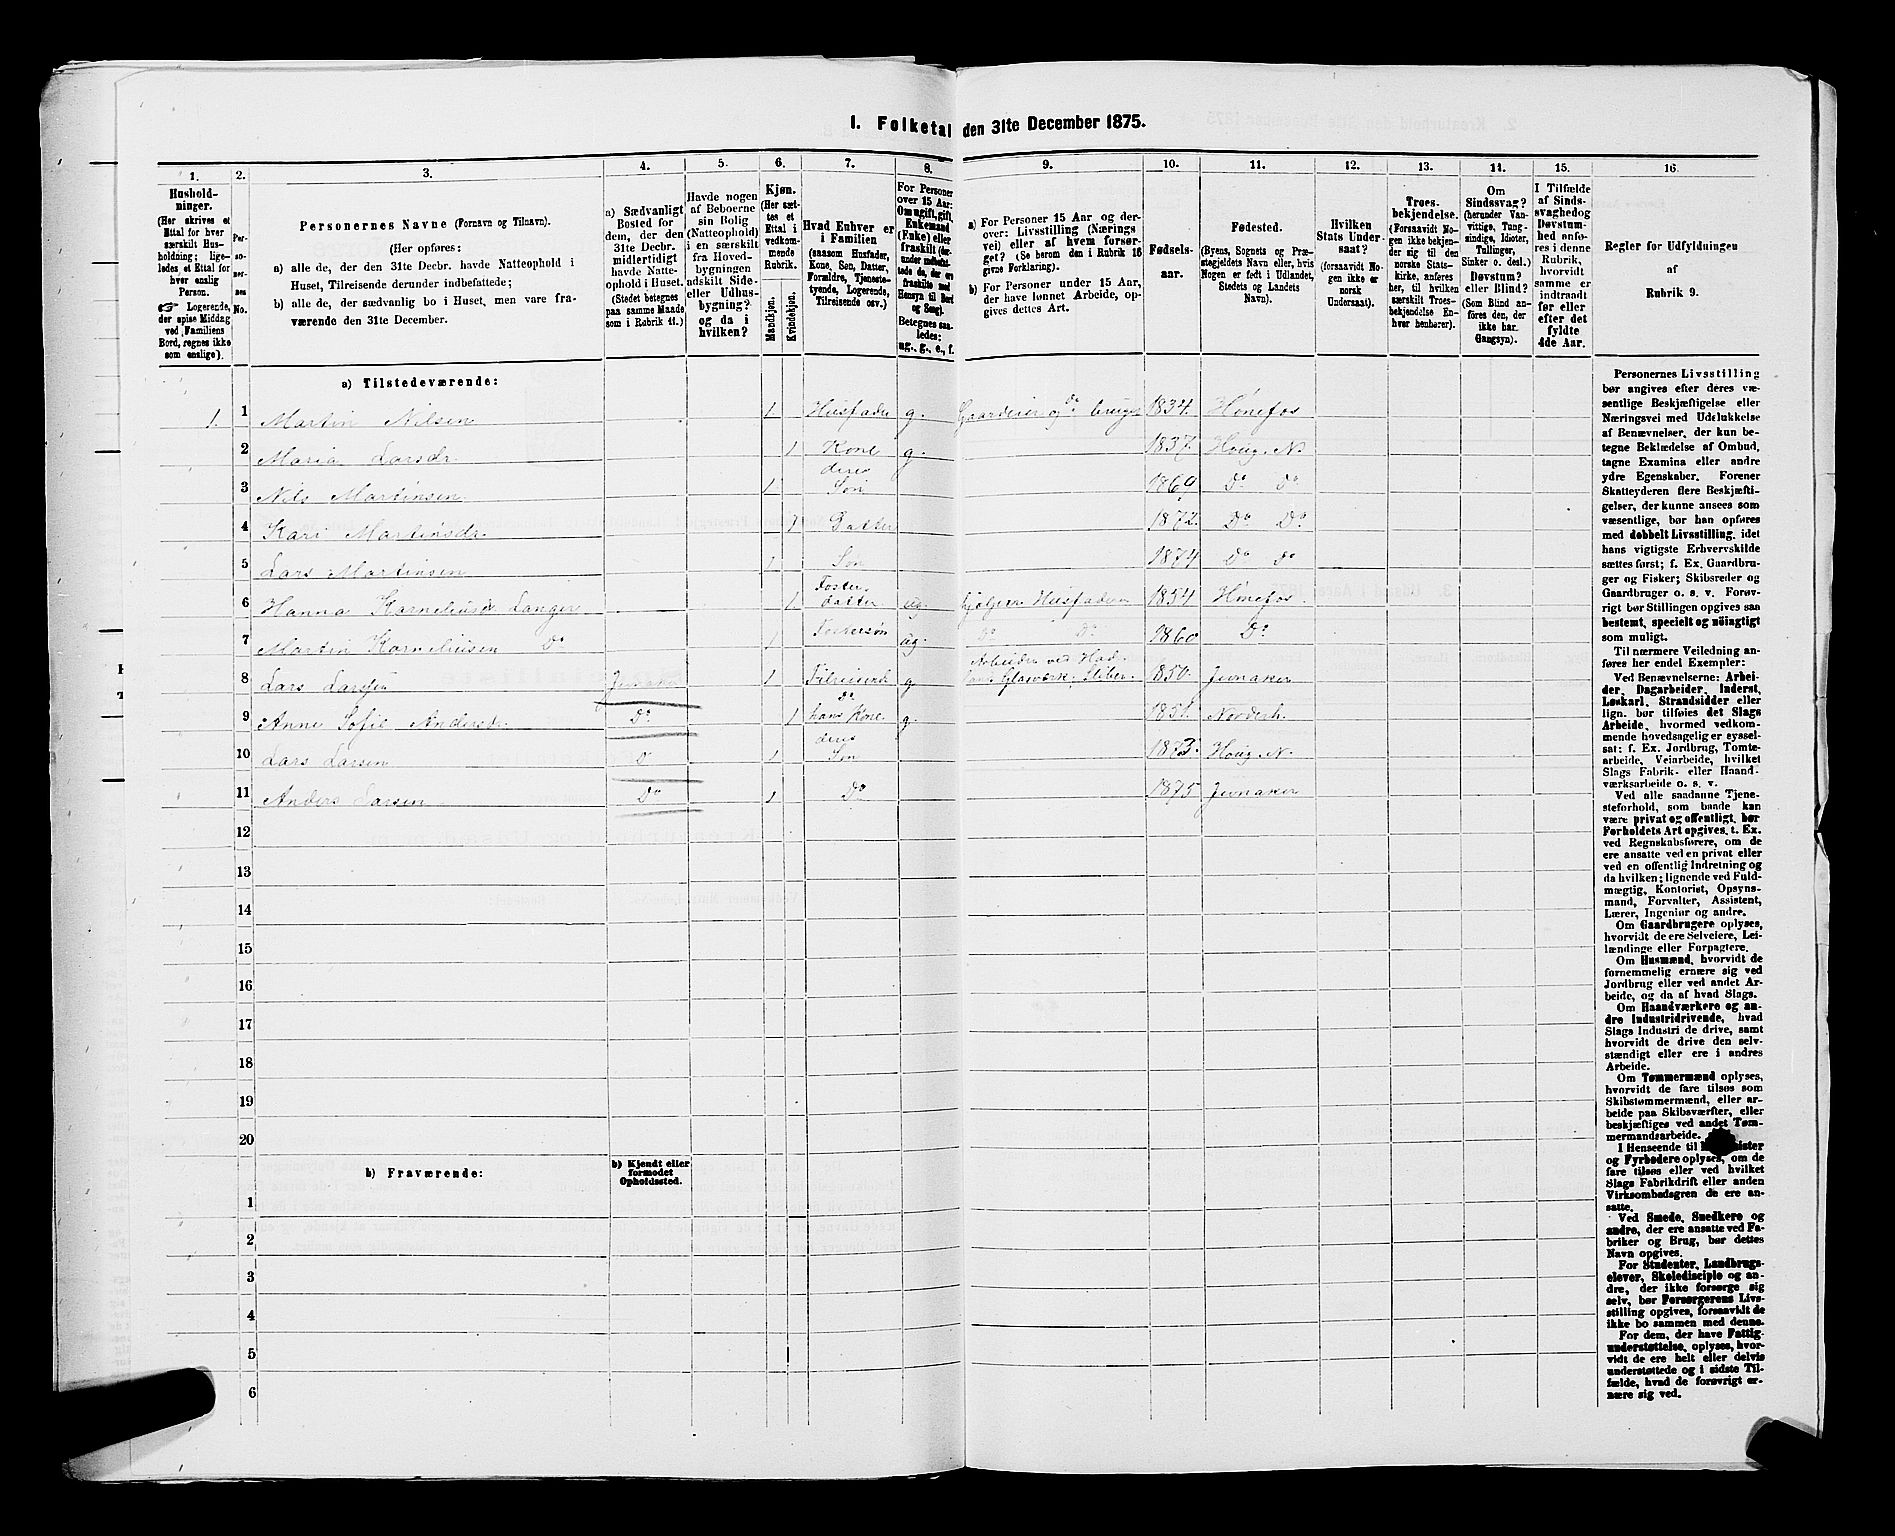 I. Folketal den 31te December 1875.
1.
Hushold-
ninger.
(Her skrives et
Ettal for hver
særskilt Hus-
holdning; lige-
ledes et Ettal for
hver enslig
Person.
Logerende,
der spise Middag
ved Familiens
Bord, regnes ikke
som enslige).
2.
Per-
so-
ner-
nes
No.
3.
Personernes Navne (Fornavn og Tilnavn).
(Her opføres:
a) alle de, der den 31te Decbr. havde Natteophold i
Huset, Tilreisende derunder indbefattede;
b) alle de, der sædvanlig bo i Huset, men vare fra-
værende den 31te December.
4.
a) Sædvanligt
Bosted for
dem, der den
31te Decbr.
midlertidigt
havde Natte-
ophold i Huset.
(Stedet betegnes
paa samme Maade
som i Rubrik 11.)
5.
Havde nogen
af Beboerne
sin Bolig
(Natteophold)
i en særskilt
fra Hoved-
bygningen
adskilt Side-
eller Udhus-
bygning?
og da i
hvilken?
6.
Kjøn.
(Her sæt-
tes et
Ettal i
vedkom-
mende
Rubrik.
Mandkjøn.
Kvindekjøn.
7.
Hvad Enhver er
i Familien
(saasom Husfader,
Kone, Søn, Datter,
Forældre, Tjeneste-
tyende, Logerende,
Tilreisende osv.)
8.
For Personer
over 15 Aar:
Om ugift, gift,
Enkemand
(Enke) eller
fraskilt (der-
under indbefat-
tede de, der ere
fraskilte med
Hensyn til Bord
og Seng).
Betegnes saa-
ledes:
ug., g., e., f.
9.
a) For Personer 15 Aar og der-
over: Livsstilling (Nærings
vei) eller af hvem forsør-
get? (Se herom den i Rubrik 16
givne Forklaring).
b) For Personer under 15 Aar,
der have lønnet Arbeide, op-
gives dettes Art.
10.
Fødsels-
aar.
11.
Fødested.
(Byens, Sognets og Præ-
stegjeldets Navn eller, hvis
Nogen er født i Udlandet,
Stedets og Landets
Navn).
12.
Hvilken
Stats Under-
saat?
(forsaavidt No-
gen ikke er
norsk
Undersaat).
13.
Troes-
bekjendelse.
(Forsaavidt No-
gen ikke bekjen-
der sig til den
norske Stats-
kirke, anføres
her, til hvilken
særskilt Troes-
bekjendelse En-
hver henhører).
14.
Om
Sindssvag?
(herunder Van-
vittige, Tung-
sindige, Idioter,
Tullinger,
Sinker o. desl.)
Døvstum?
eller Blind?
(Som Blind an-
føres den, der
ikke har
Gangsyn).
15.
I Tilfælde
af Sinds-
svaghed og
Døvstum-
hed anfø-
res i denne
Rubrik,
hvorvidt
samme er
indtraadt
før eller
efter det
fyldte
4de Aar.
16.
Regler for Udfyldningen
af
Rubrik 9.
a) Tilstedeværende:
1. 1 Martin Nilsen 1 Husfader g. Gaardeier og do bruger 1834. Hønefos
2 Maria Larsdr 1 Kone g. 1837. Houg. N.
3 Nils Martinsen 1 deres Søn 1869 Do Do
4 Kari Martinsdr. 1 Datter 1872. Do Do
5 Lars Martinsen 1 Søn 1874 Do Do
6 Hanna Karneliusd Langer 1 Foster- datter ug. hjælper Husfaderen 1854 Hønefos.
7 Martin Karneliusen Do 1 Fostersøn ug. Do Do 1860 Do
8 Lars Larssen Jevnaker 1 Tilreisende g. Arbeider ved Had- lands Glasværk, Sliber. 1850. Jevnaker
9 Anne Sofie Andersdr Do 1 Do hans Kone g. 1851. Norderh.
10 Lars Larsen Do 1 deres Søn 1873. Houg. N.
11 Anders Larsen Do 1 Do 1875 Jevnaker
12
13
14
15
16
17
18
19
20
b) Fraværende:
b) Kjendt eller
formodet
Opholdssted.
1
2
3
4
5
6
Personernes Livsstilling
bør angives efter deres væ-
sentlige Beskjæftigelse eller
Næringsvei med Udelukkelse
af Benævnelser, der kun be-
tegne Beklædelse af Ombud,
tagne Examina eller andre
ydre Egenskaber. Forener
Skatteyderen flere Beskjæfti-
gelser, der kunne ansees som
væsentlige, bør han opføres
med dobbelt Livsstilling, idet
hans vigtigste Erhvervskilde
sættes først; f. Ex. Gaardbru-
ger og Fisker; Skibsreder og
Gaardbruger o. s. v. Forøv-
rigt bør Stillingen opgives saa
bestemt, specielt og nøiagtigt
som muligt.
Til nærmere Veiledning an-
føres her endel Exempler:
Ved Benævnelserne: Arbei-
der, Dagarbeider, Inderst,
Løskarl, Strandsidder eller
lign. bør tilføies det Slags
Arbeide, hvormed vedkom-
mende hovedsagelig er syssel-
sat: f. Ex. Jordbrug, Tomte-
arbeide, Veiarbeide, hvilket
Slags Fabrik- eller Haand-
værksarbeide o. s. v.
Ved alle saadanne Tjene-
steforhold, som baade kan
være privat og offentligt, bør
Forholdets Art opgives, t. Ex.
ved Regnskabsførere, om de
ere ansatte ved en privat eller
ved en offentlig Indretning og
da hvilken; lignende ved Fuld-
mægtig, Kontorist, Opsyns-
mand, Forvalter, Assistent,
Lærer, Ingeniør og andre.
Om Gaardbrugere oplyses,
hvorvidt de ere Selveiere, Lei-
lændinge eller Forpagtere.
Om Husmænd, hvorvidt de
fornemmelig ernære sig ved
Jordbrug eller ved andet Ar-
beide, og da af hvad Slags.
Om Haandværkere og an-
dre Industridrivende, hvad
Slags Industri de drive, samt
hvorvidt de drive den selv-
stændigt eller ere i andres
Arbeide.
Om Tømmermænd oplyses,
hvorvidt de fare tilsøs som
Skibstømmermænd, eller ar-
beide paa Skibsværfter, eller
beskjæftiges ved andet Tøm-
mermandsarbeide.
I Henseende til
og Fyrbødere oplyses, om de
fare tilsøs eller ved hvilket
Slags Fabrikdrift eller anden
Virksomhedsgren de ere an-
satte.
Ved Smede, Snedkere og
andre, der ere ansatte ved Fa-
briker og Brug, bør dettes
Navn opgives.
For Studenter, Landbrugs-
elever, Skoledisciple og an-
dre, der ikke forsørge sig
selv, bør Forsørgerens Livs-
stilling opgives, forsaavidt de
ikke bo sammen med denne.
For dem, der have Fattig-
understøttelse, oplyses, hvor-
vidt de ere helt eller delvis
understøttede og i sidste Til-
fælde, hvad de forøvrigt er-
nære sig ved.